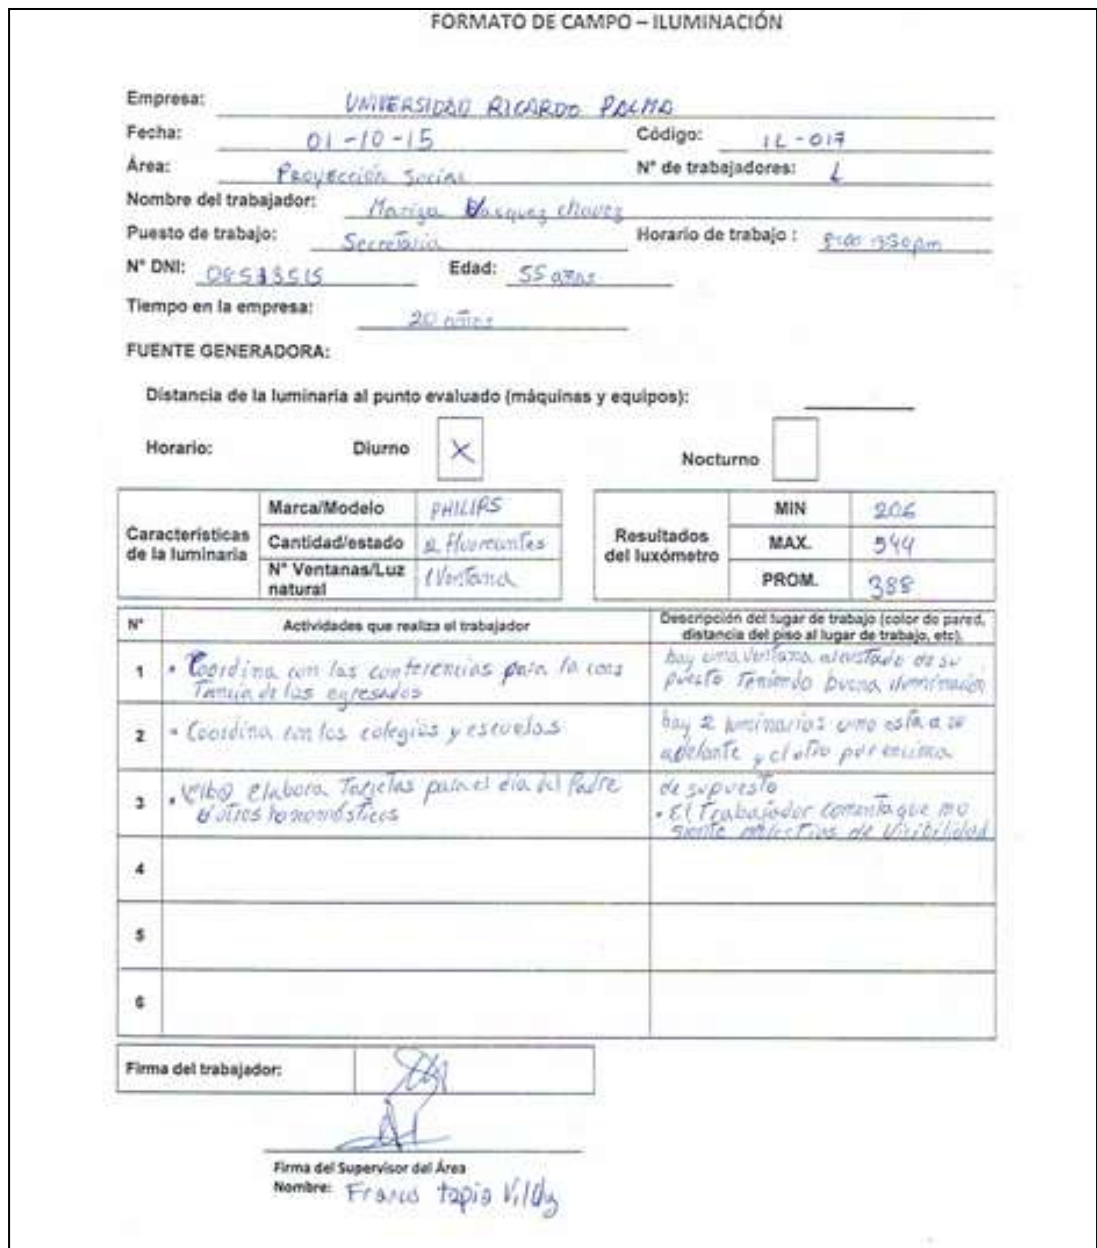 FORMATO DE CAMPO – ILUMINACIÓN
Empresa: UNIVERSIDAD RICARDO PALMA
Fecha: 01-10-15 Código: IL-017
Área: Proyección Social N° de trabajadores:
Nombre del trabajador: Mariza Vasquez Chavez
Puesto de trabajo: Secretaria Horario de trabajo :
N° DNI: Edad: 55 años
Tiempo en la empresa: 20 años
FUENTE GENERADORA:
Distancia de la luminaria al punto evaluado (máquinas y equipos):
Horario: Diurno X Nocturno
Características de la luminaria
Marca/Modelo PHILIPS
Cantidad/estado 2 fluorecentes
N° Ventanas/Luz natural 1 Ventana
Resultados del luxómetro
MIN 206
MAX. 544
PROM. 388
N° Actividades que realiza el trabajador Descripción del lugar de trabajo (color de pared, distancia del piso al lugar de trabajo, etc).
1 • Coordina con las conferencias para la
de los egresados
hay una ventana al costado de su
puesto Teniendo buena iluminación
2 • Coordina con los colegios y escuelas
hay 2 luminarias uno esta a su
adelante y el otro por encima
3 • elabora Tarjetas para el día del Padre
de su puesto
• El Trabajador comenta que no
siente molestias de Visibilidad
4
5
6
Firma del trabajador:
Firma del Supervisor del Área
Nombre: Franco tapia